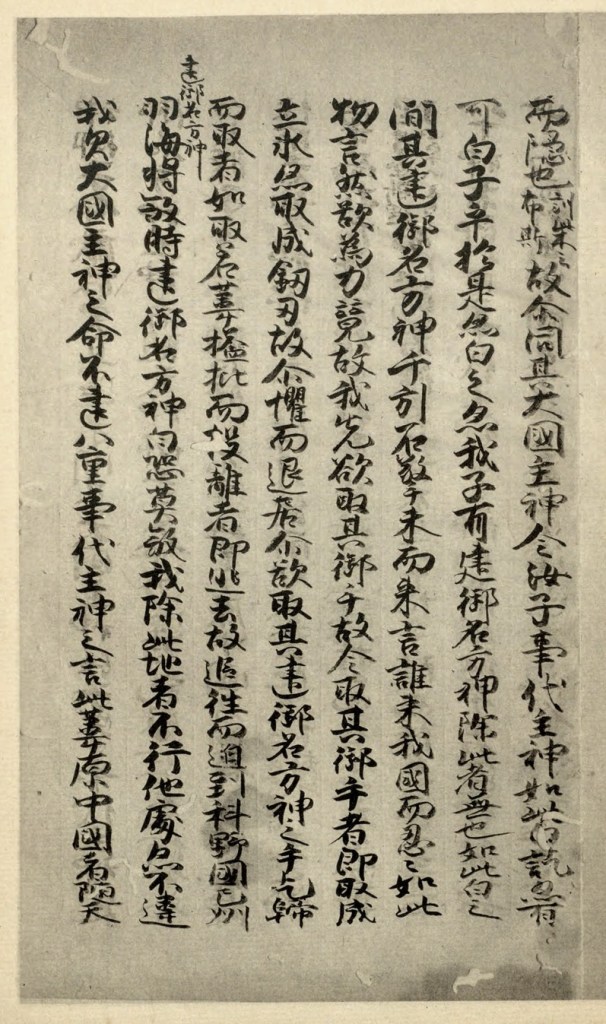 而隠也訓柴云布斯故尒問其大國主神今汝子事代主神如此白訖
可白子乎於是亦白之亦我子有建御名方神除此者無也如此白之
間其建御名方神千引石擎手末而来言誰来我國而忍々如此
物言然欲為力競故我先欲取其御手故令取其御手者即取成
立氷亦取成釼刃故尒懼而退居尒欲取其建御名方神之手乞歸
而取者如取若葦搤批而投離者即逃去故追往而迫到科野國之州
羽海将殺時建御名方神白恐莫殺我除此地者不行他處亦不違
建御名方神
我父大國主神之命不違八重事代主神之言此葦原中國者隨天